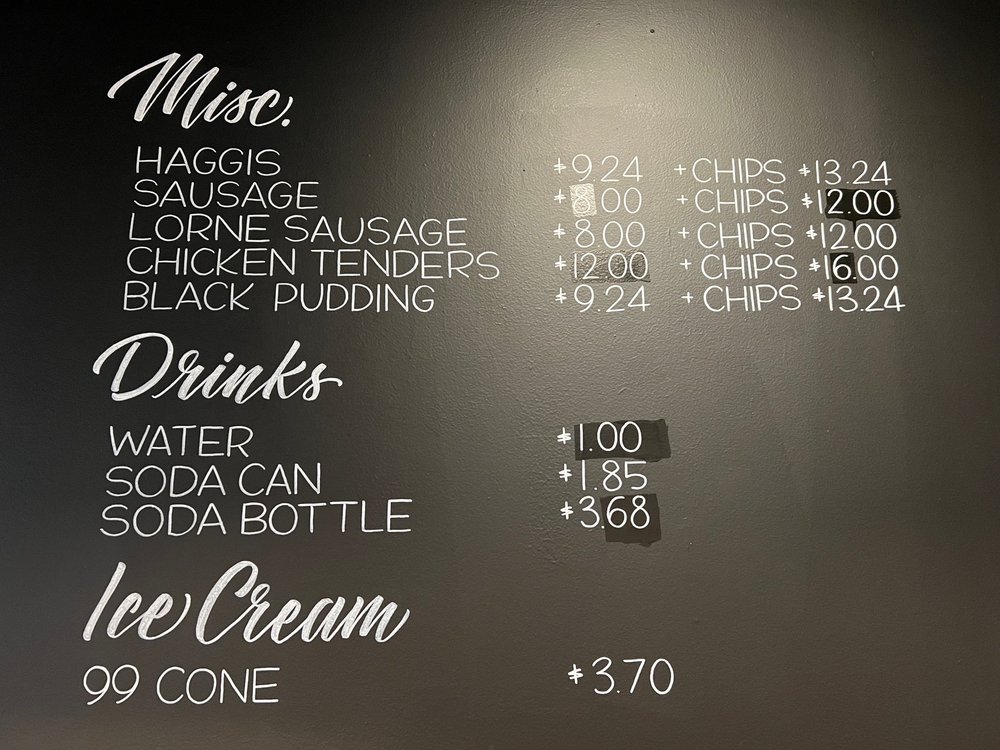 Misc.
HAGGIS $9.24 + CHIPS $13.24
SAUSAGE $8.00 + CHIPS $12.00
LORNE SAUSAGE $8.00 + CHIPS $12.00
CHICKEN TENDERS $12.00 + CHIPS $16.00
BLACK PUDDING $9.24 + CHIPS $13.24
Drinks
WATER $1.00
SODA CAN $1.85
SODA BOTTLE $3.68
Ice Cream
99 CONE $3.70